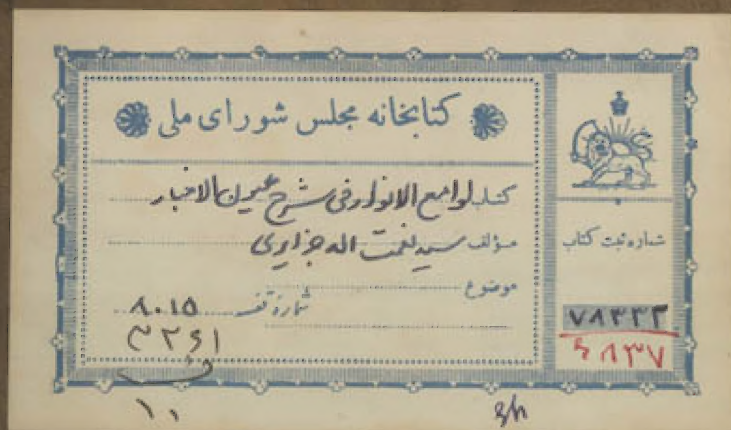 کتابخانه مجلس شورای ملی
کتاب لوامع الانوار فی شرح عیون الاخبار
مؤلف سید نعمت اله جزایری
موضوع
شماره قفسه ۸۰۱۵
شماره ثبت کتاب
۷۸۳۳۲
۶۸۳۷
۱۰